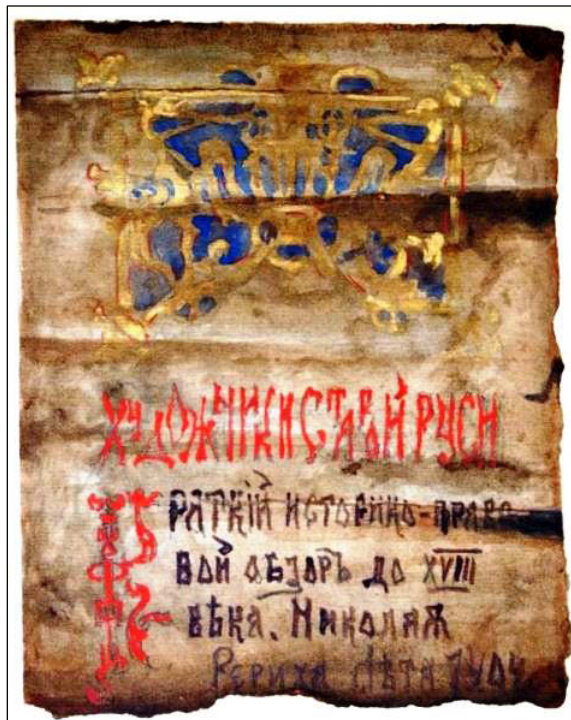 ХУДОЖНИКИ СТАРОЙ РУСИ
КРАТКІЙ ИСТОРИКО-ПРАВО
ВОЙ ОБЗОРЪ ДО XVIII
ВѢКА. НИКОЛАЯ
РЕРИХА ЛѢТА